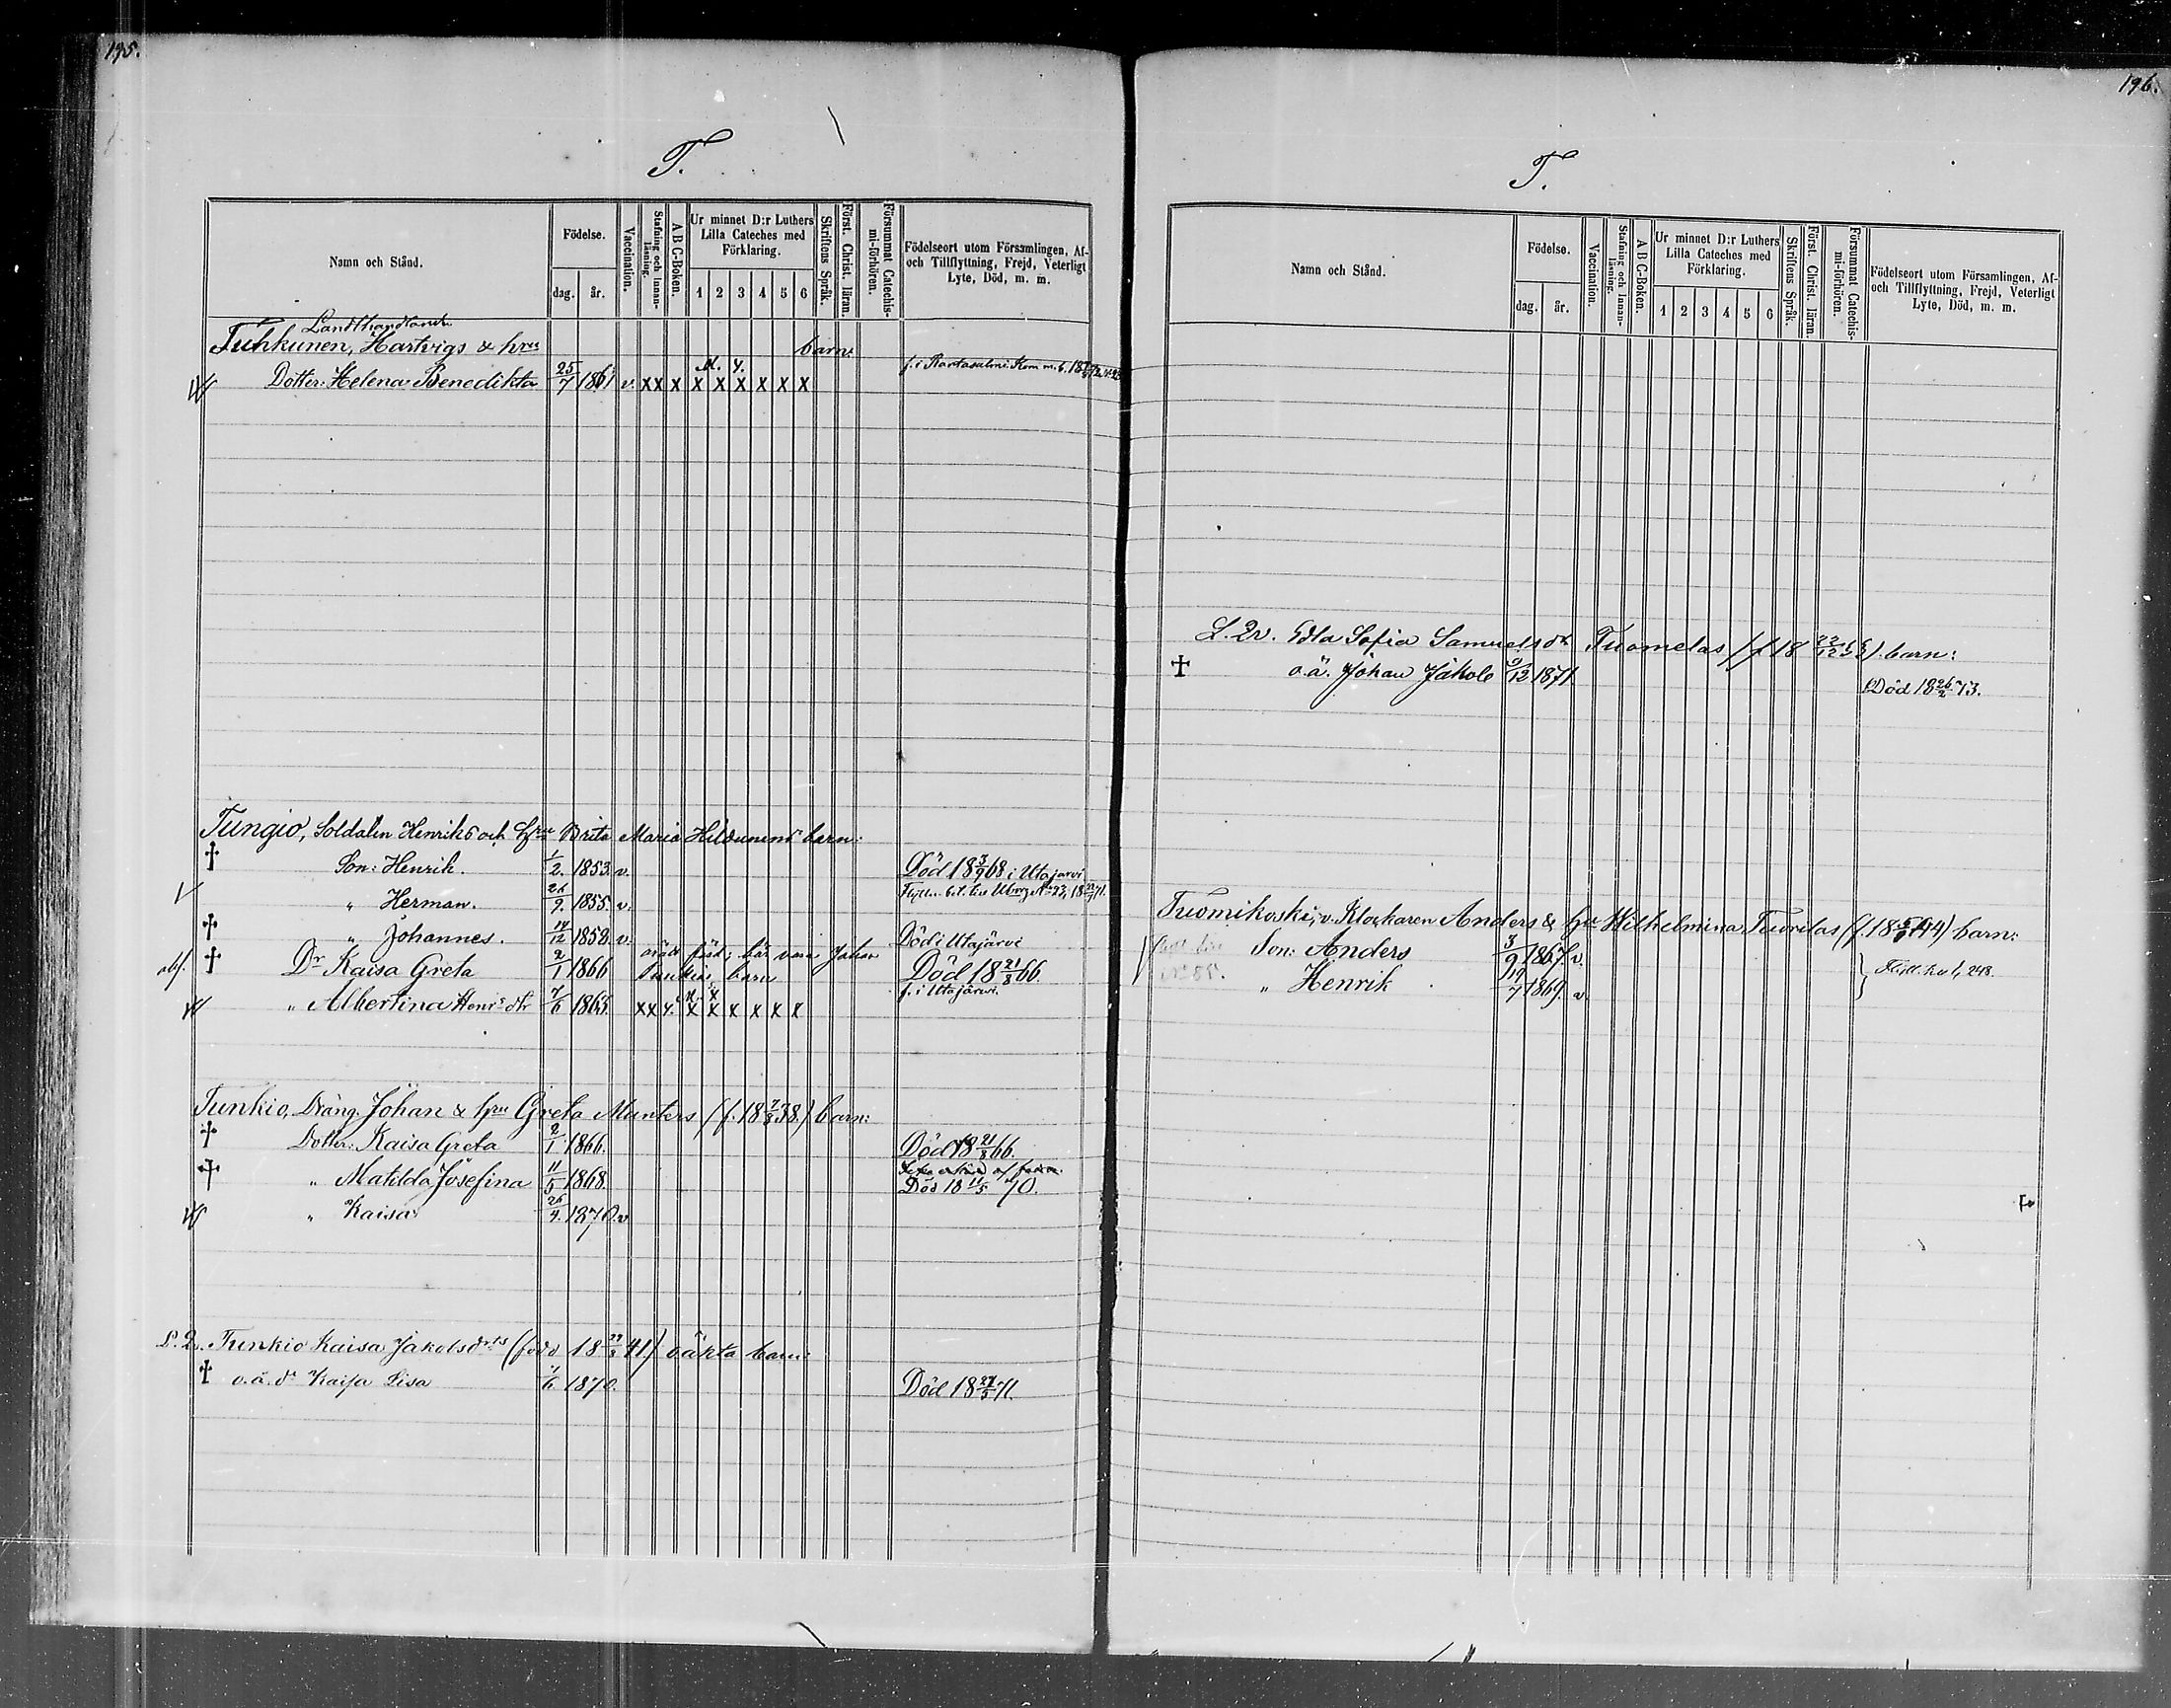 195.
T.
Namn och Stånd.
Födelse.
dag. år.
Vaccination.
Stafning och Innan-läsning.
A B C-Boken.
Ur minnet D:r Luthers Lilla Cateches med Förklaring.
1 2 3 4 5 6
Skriftens Språk.
Först. Christ. läran.
Försummat Catechis-mi-förhören.
Födelseort utom Församlingen, Af- och Tillflyttning, Frejd, Veterligt Lyte, Död, m. m.
Landthandlande
Tuhkunen, Hartvigs & hrus barn:
Dotter: Helena Benedikta 25/7 1861 v. x x x x x x x x x f. i Rantasalmi. Kom m. b.
Tungio, Soldaten Henriks och Hru Brita Maria barn:
† Son: Henrik. 1/2. 1853. v. Död 18 3/9 68 i Utajärvi
V " Herman. 26/9. 1855. v.
† " Johannes. 14/12 1858. v. Död i Utajärvi
† Dr Kaisa Greta 2/1 1866 barn Död 18 21/8 66.
" Albertina Henrs dtr 7/6 1865. x x x x x x x x f. i Utajärvi.
Tunkio, Dräng. Johan & hru Greta Munters (f. 18 7/8 38.) barn:
† Dotter: Kaisa Greta 2/1 1866. Död 18 21/8 66.
† " Matilda Josefina 11/5 1868. Död 18 11/5 70.
" Kaisa 26/9. 1870. v
L. 2. Tunkio Kaisa Jakobsdrs (född 18 41) oäkta barn:
† o.ä. dr Kaisa Lisa 1/6 1870. Död 18 27/5 71.
196.
T.
Namn och Stånd.
Födelse.
dag. år.
Vaccination.
Stafning och Innan-läsning.
A B C-Boken.
Ur minnet D:r Luthers Lilla Cateches med Förklaring.
1 2 3 4 5 6
Skriftens Språk.
Först. Christ. läran.
Försummat Catechis-mi-förhören.
Födelseort utom Församlingen, Af- och Tillflyttning, Frejd, Veterligt Lyte, Död, m. m.
L. Qv. Edla Sofia Samuelsdr Tuomelas (f. 18 22/12 ) barn:
† o.ä. Johan Jakob 1871. Död 18 26/2 73.
Tuomikoski, v. Klockaren Anders & hru Wilhelmina Tuorilas (f. 18 44) barn:
Son: Anders 3/9 1867. v.
" Henrik 19/7 1869. v.